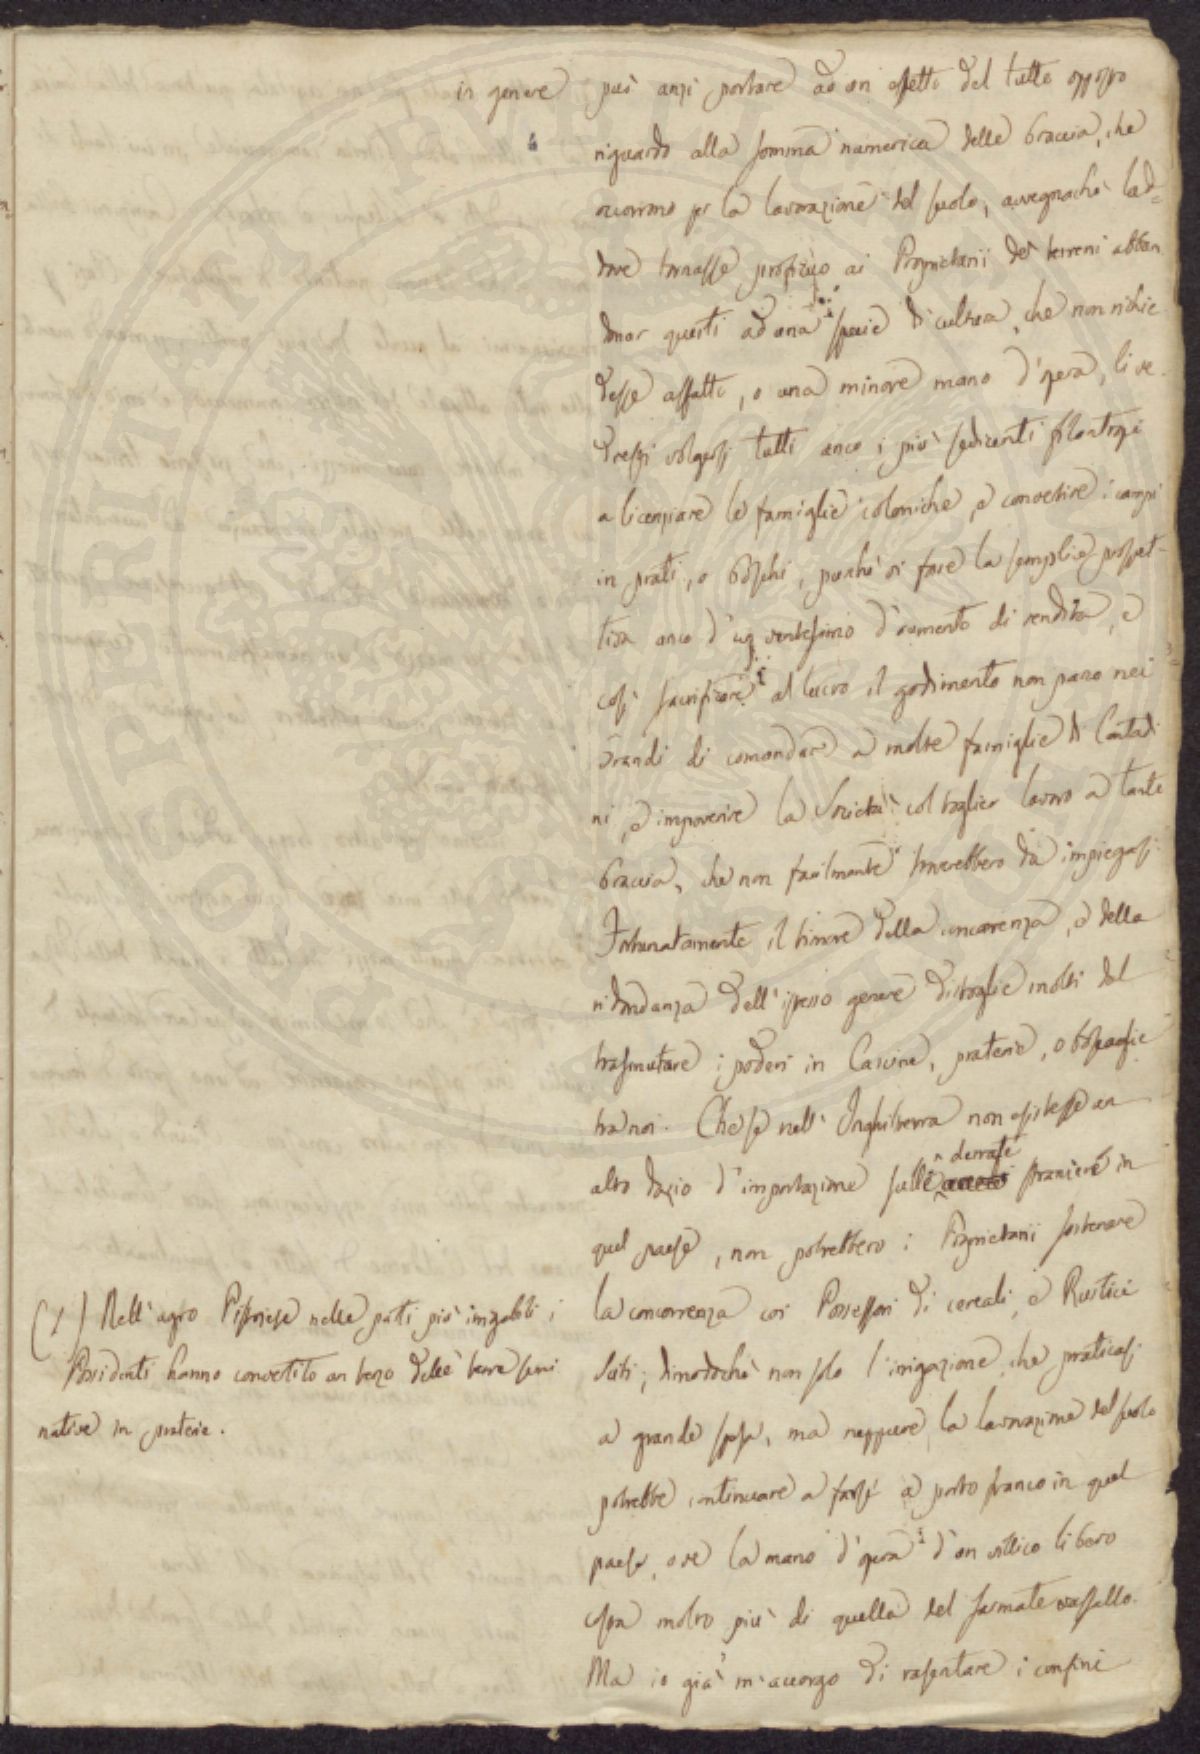 in genere può anzi portare ad un effetto del tutto opposto
riguardo alla somma numerica delle braccia, che
occorrono per la lavorazione del suolo, avvegnachè lad=
dove tornasse proficuo ai Proprietarii dei terreni abban
donar questi ad una specie di cultura, che non richie
desse affatto, o una minore mano d'opera, li ve
dresti volgersi tutti anco i più sedicenti filantropi
a licenziare le famiglie coloniche, e convertire i campi
in prati, o boschi, purchè vi fosse la semplice prospet-
tiva anco d'un ventesimo d'aumento di rendita, e
così sacrificare al lucro il godimento non parco nei
Grandi di comandare a molte famiglie di Contadi
ni, e impoverire la Società col toglier lavoro a tante
braccia, che non facilmente troverebbero da impiegarsi.
Fortunatamente il timore della concorrenza, e della
ridondanza dell'istesso genere distoglie molti dal
trasmutare i poderi in Cascine, praterie, o boscaglie
tra noi. Che se nell'Inghilterra non esistesse un
alto dazio d'importazione sulle derrate straniere in
quel paese, non potrebbero i Proprietarii sostenere
la concorrenza coi Possessori di cereali, e Rustici
Sciti; dimodochè non solo l'irrigazione, che praticasi
a grande spesa, ma neppure la lavorazione del suolo
potrebbe continuare a farsi a porto franco in quel
paese, ove la mano d'opera d'un villico libero
costa molto più di quella del sarmate vassallo.
Ma io già m'accorgo di rasentare i confini
(1) Nell'agro Pistojese nelle parti più irrigabili i
Possidenti hanno convertito un terzo delle terre semi
native in praterie.